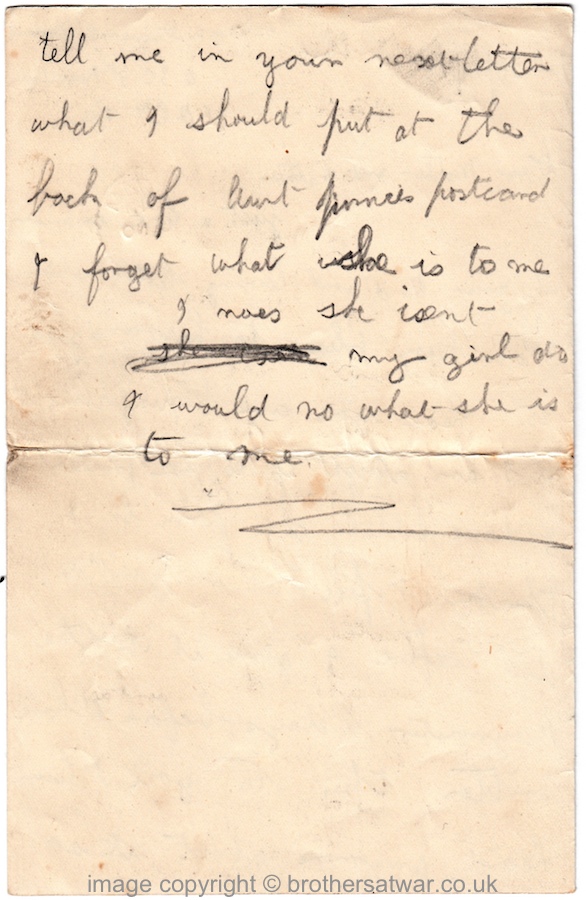 tell me in your next letter
what I should put at the
back of Aunt postcard
I forget what she is to me
I noes she isent
my girl
I would no what she is
to me.
image copyright © brothersatwar.co.uk